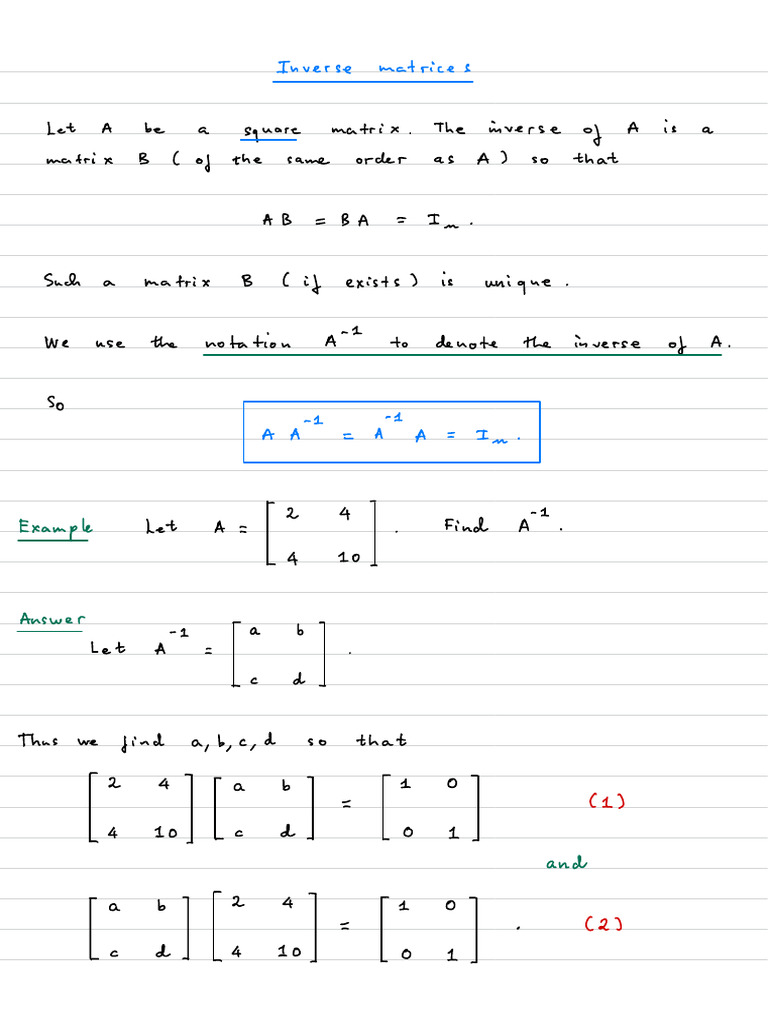 Inverse matrices
Let A be a square matrix. The inverse of A is a
matrix B (of the same order as A) so that
AB = BA = Iₙ.
Such a matrix B (if exists) is unique.
We use the notation A⁻¹ to denote the inverse of A.
So
A A⁻¹ = A⁻¹ A = Iₙ.
Example Let A = [2 4; 4 10]. Find A⁻¹.
Answer
Let A⁻¹ = [a b; c d].
Thus we find a, b, c, d so that
[2 4; 4 10] [a b; c d] = [1 0; 0 1] (1)
and
[a b; c d] [2 4; 4 10] = [1 0; 0 1]. (2)